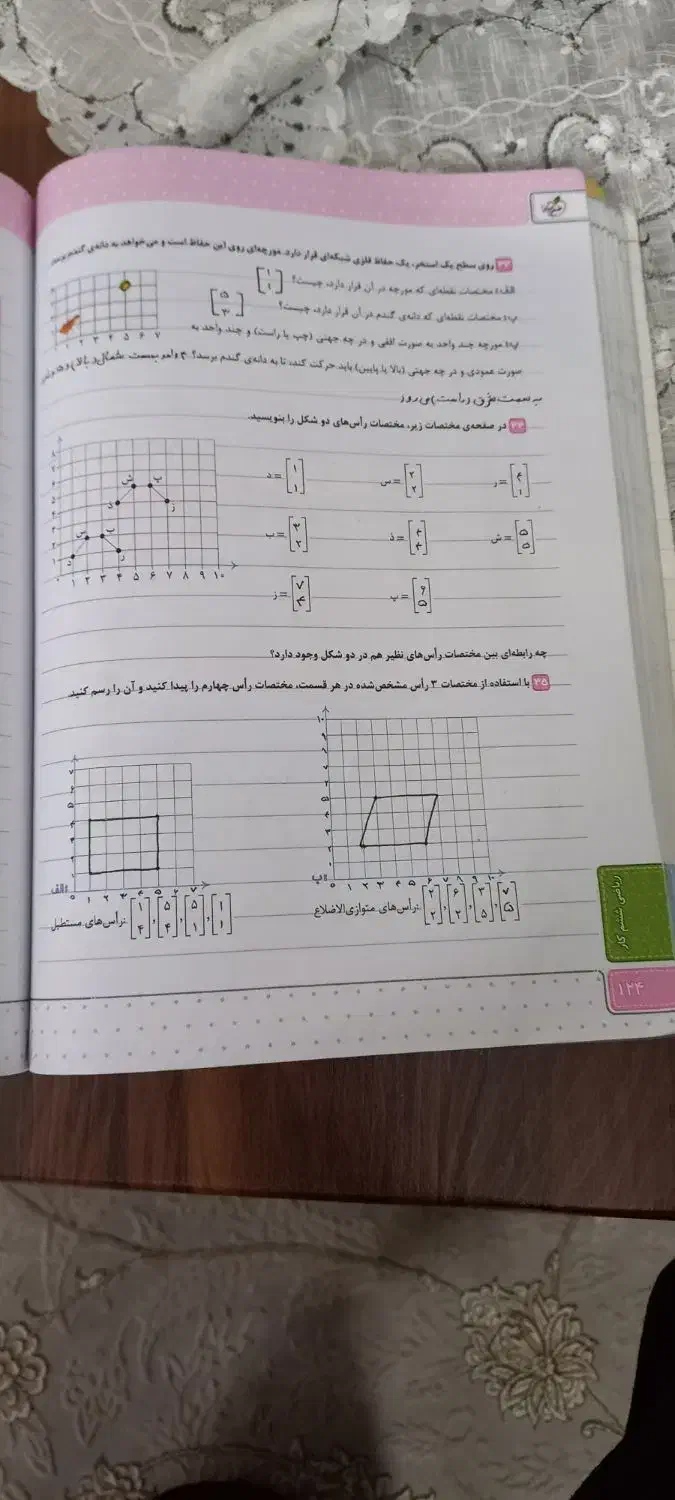 ۳۳ روی سطح یک استخر، یک حفاظ فلزی شبکه‌ای قرار دارد. مورچه‌ای روی این حفاظ است و می‌خواهد به دانه‌ی گندم برسد.
الف) مختصات نقطه‌ای که مورچه در آن قرار دارد، چیست؟ [۱ ۱]
ب) مختصات نقطه‌ای که دانه‌ی گندم در آن قرار دارد، چیست؟ [۵ ۳]
پ) مورچه چند واحد به صورت افقی و در چه جهتی (چپ یا راست) و چند واحد به
صورت عمودی و در چه جهتی (بالا یا پایین) باید حرکت کند، تا به دانه‌ی گندم برسد؟
به سمت شرق (راست) می‌رود
۱ ۲ ۳ ۴ ۵ ۶ ۷
۳۴ در صفحه‌ی مختصات زیر، مختصات رأس‌های دو شکل را بنویسید.
ر = [۴ ۱] س = [۲ ۲] د = [۱ ۱]
ش = [۵ ۵] ذ = [۴ ۴] ب = [۳ ۲]
پ = [۶ ۵] ز = [۷ ۴]
ش پ
ذ ز
س ب
د ر
۰ ۱ ۲ ۳ ۴ ۵ ۶ ۷ ۸ ۹ ۱۰
چه رابطه‌ای بین مختصات رأس‌های نظیر هم در دو شکل وجود دارد؟
۳۵ با استفاده از مختصات ۳ رأس مشخص‌شده در هر قسمت، مختصات رأس چهارم را پیدا کنید و آن را رسم کنید.
ب)
۰ ۱ ۲ ۳ ۴ ۵ ۶ ۷ ۸ ۹ ۱۰
رأس‌های متوازی‌الاضلاع: [۲ ۲], [۶ ۲], [۳ ۵], [۷ ۵]
الف)
۰ ۱ ۲ ۳ ۴ ۵ ۶ ۷
رأس‌های مستطیل: [۱ ۴], [۵ ۴], [۵ ۱], [۱ ۱]
ریاضی ششم کار
۱۲۴